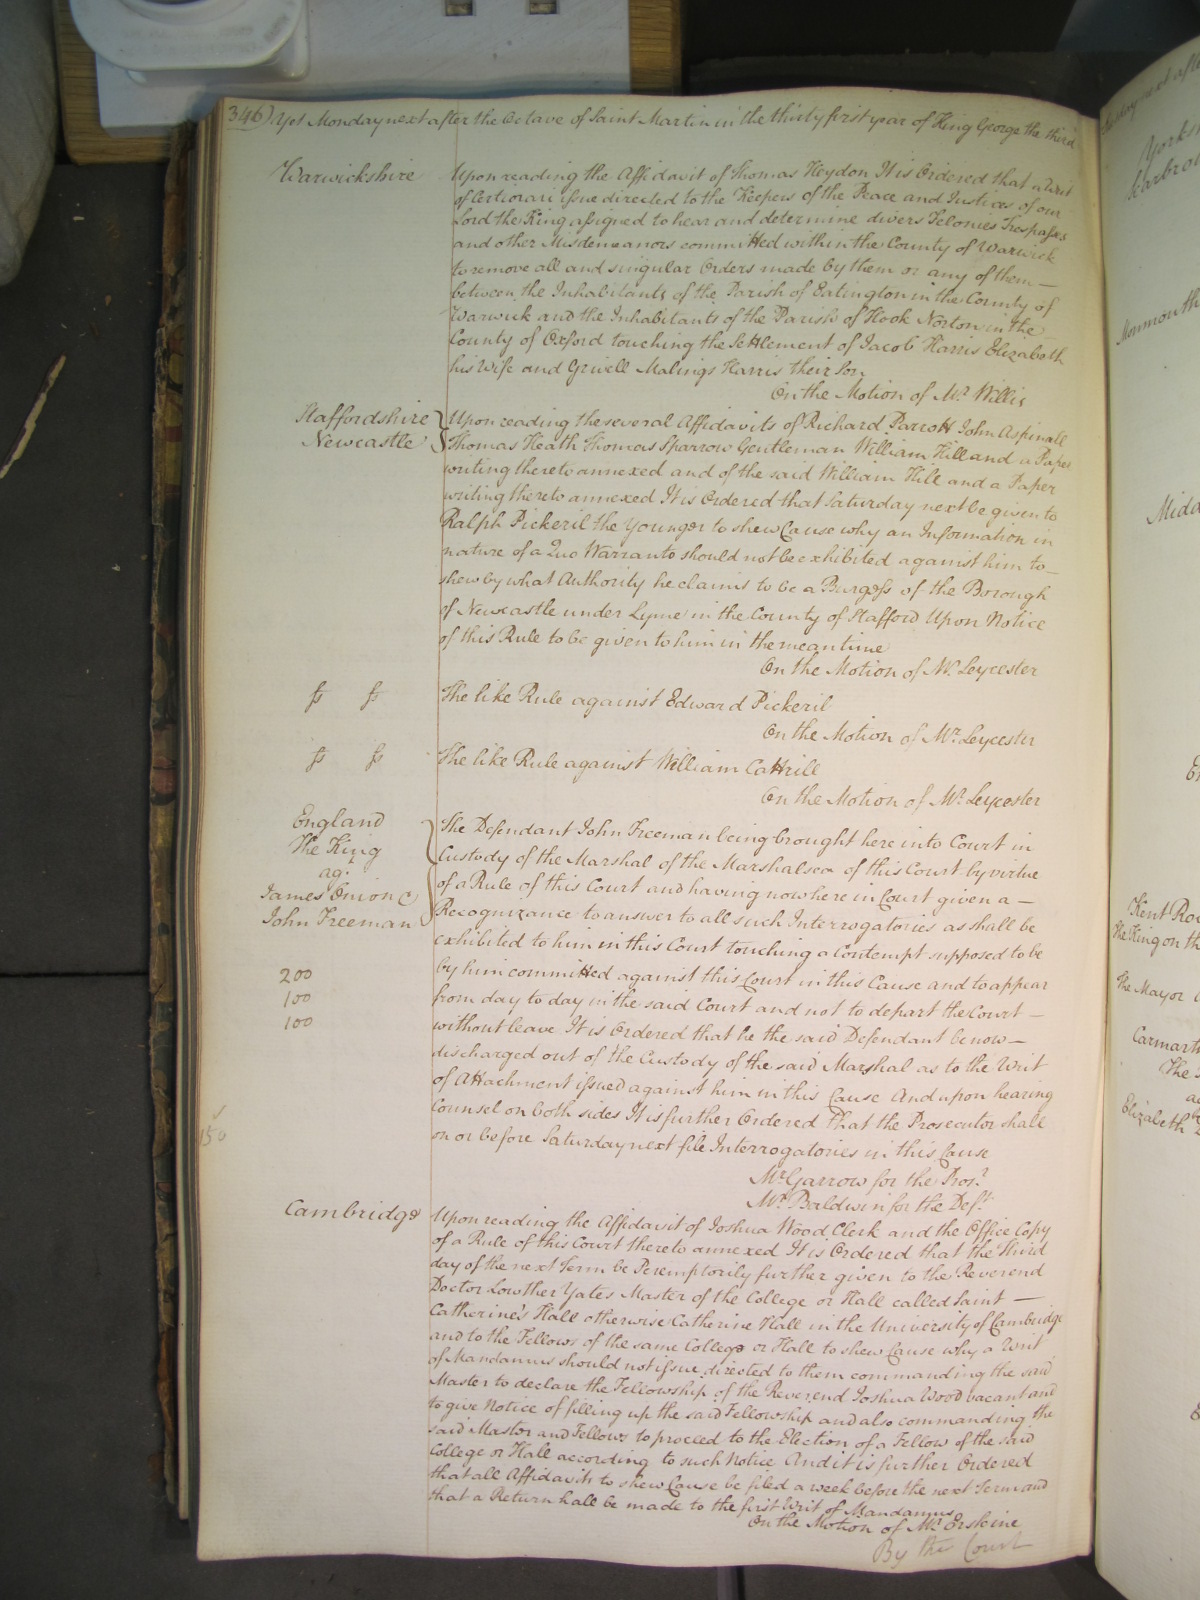 346) Yet Monday next after the Octave of Saint Martin in the thirty first year of King George the third
Warwickshire
Upon reading the Affidavit of Thomas Heydon It is Ordered that a Writ
of Certiorari issue directed to the Keepers of the Peace and Justices of our
Lord the King assigned to hear and determine divers Felonies Trespasses
and other Misdemeanors committed within the County of Warwick
to remove all and singular Orders made by them or any of them —
between the Inhabitants of the Parish of Eatington in the County of
Warwick and the Inhabitants of the Parish of Hook Norton in the
County of Oxford touching the Settlement of Jacob Harris Elizabeth
his Wife and Grivell Malings Harris their Son
On the Motion of Mr. Willis
Staffordshire
Newcastle
Upon reading the several Affidavits of Richard Parrott John Aspinall
Thomas Heath Thomas Sparrow Gentleman William Hill and a Paper
writing thereto annexed and of the said William Hill and a Paper
writing thereto annexed It is Ordered that Saturday next be given to
Ralph Pickeril the Younger to shew Cause why an Information in
nature of a Quo Warranto should not be exhibited against him to —
shew by what Authority he claims to be a Burgess of the Borough
of Newcastle under Lyme in the County of Stafford Upon Notice
of this Rule to be given to him in the mean time
On the Motion of Mr. Leycester
ss ss
The like Rule against Edward Pickeril
On the Motion of Mr. Leycester
ss ss
The like Rule against William Cattrill
On the Motion of Mr. Leycester
England
The King
agt.
James Onion &
John Freeman
200
100
100
150
The Defendant John Freeman being brought here into Court in
Custody of the Marshal of the Marshalsea of this Court by virtue
of a Rule of this Court and having now here in Court given a —
Recognizance to answer to all such Interrogatories as shall be
exhibited to him in this Court touching a Contempt supposed to be
by him committed against this Court in this Cause and to appear
from day to day in the said Court and not to depart the Court —
without leave It is Ordered that he the said Defendant be now —
discharged out of the Custody of the said Marshal as to the Writ
of Attachment issued against him in this Cause And upon hearing
Counsel on both sides It is further Ordered that the Prosecutor shall
on or before Saturday next file Interrogatories in this Cause
Mr. Garrow for the Pros.r
Mr. Baldwin for the Def.t
Cambridge
Upon reading the Affidavit of Joshua Wood Clerk and the Office Copy
of a Rule of this Court thereto annexed It is Ordered that the third
day of the next Term be Peremptorily further given to the Reverend
Doctor Lowther Yates Master of the College or Hall called Saint —
Catherine's Hall otherwise Catherine Hall in the University of Cambridge
and to the Fellows of the same College or Hall to shew Cause why a Writ
of Mandamus should not issue directed to them commanding the said
Master to declare the Fellowship of the Reverend Joshua Wood vacant and
to give Notice of filling up the said Fellowship and also commanding the
said Master and Fellows to proceed to the Election of a Fellow of the said
College or Hall according to such Notice And it is further Ordered
that all Affidavits to shew Cause be filed a week before the next Term and
that a Return hall be made to the first Writ of Mandamus
On the Motion of Mr. Erskine
By the Court
Monmouth
Midd
Kent
The King on th
The Mayor
Carmarth
The
Elizabeth